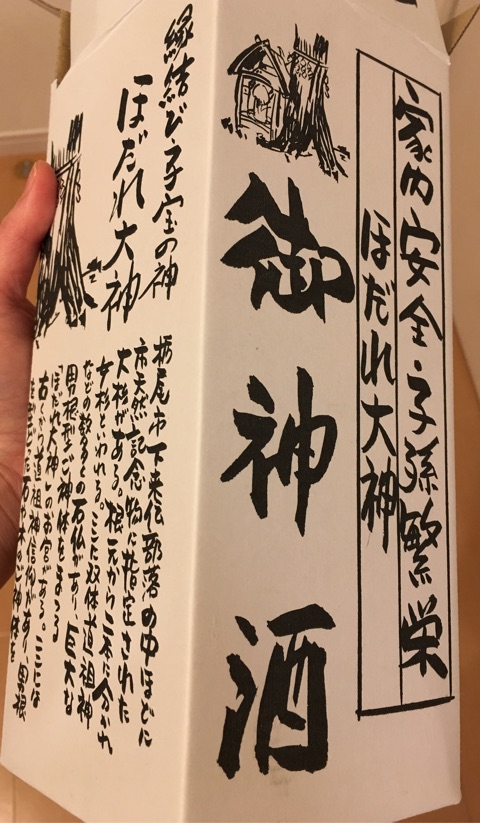 家内安全・子孫繁栄
ほだれ大神
御神酒
縁結び・子宝の神
ほだれ大神
栃尾市下来伝部落の中ほどに
市天然記念物に指定された
大杉がある。根元から二本に分かれ、
女杉といわれる。ここに双体道祖神
などの数多くの石仏があり、巨大な
男根型ご神体をまつる
「ほだれ大神」のお宮がある。ここには
古くから道祖神信仰があり、男根
石や木のご神体を